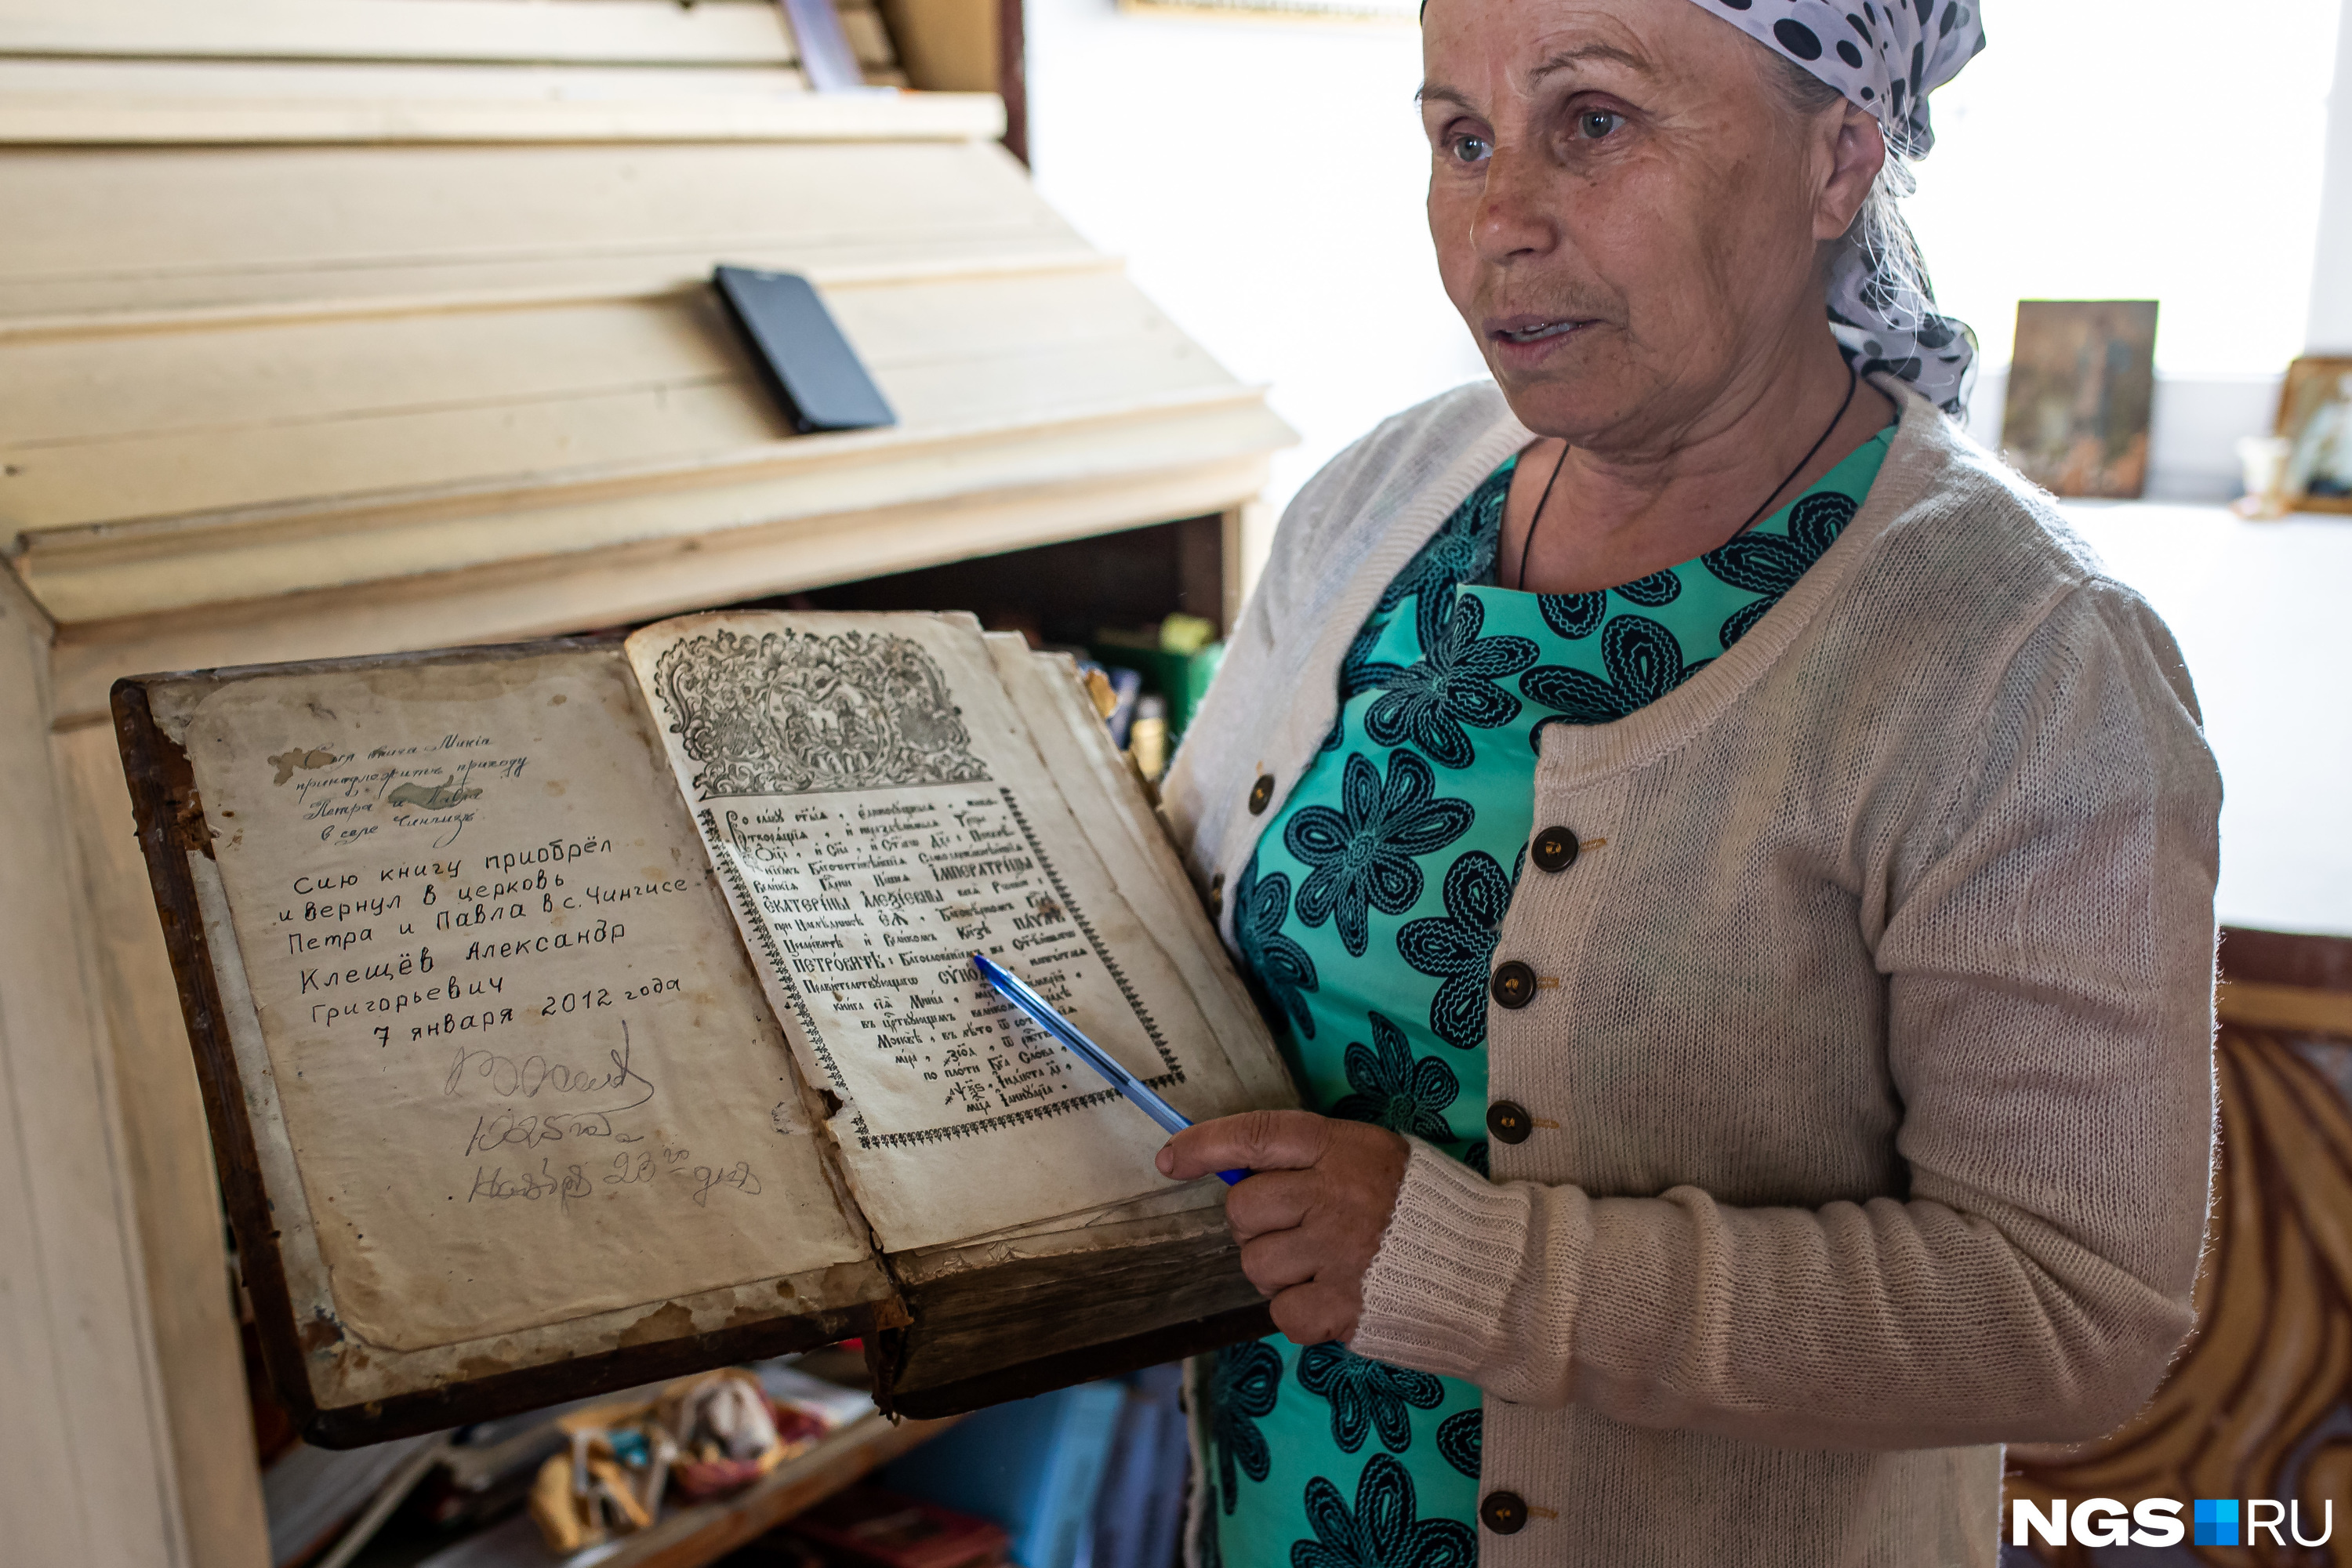 Сія книга Минія
принадлежитъ приходу
Петра и Павла
в селе Чингизъ
Сию книгу приобрёл
и вернул в церковь
Петра и Павла в с. Чингисе
Клещёв Александр
Григорьевич
7 января 2012 года
1925 года
Ноября 23го дня
Во славу ст҃ыѧ, єдиносꙋщныѧ,
и нераздѣльныѧ Трⷪ҇цы,
Ѻц҃а, и Сн҃а, и Ст҃аго Дх҃а: Повелѣ
нїемъ Благочестивѣйшїѧ Самодержавнѣйшїѧ
Великїѧ Гдⷭ҇рни Нашеѧ ІМПЕРАТРИЦЫ
ЄКАТЕРІНЫ АЛЕѮІЕВНЫ всеѧ Рѡссїи:
при Наслѣдникѣ ЄѦ, Благовѣрномъ Гдⷭ҇рѣ
Цесаревичѣ и Великомъ Кнѧзѣ ПАѴЛѢ
ПЕТРОВИЧѢ: Благословенїемъ же Ст҃ѣйшагѡ
Правителствꙋющагѡ СѴНОДА, напечатасѧ
книга сїѧ Минїа, мцⷭ҇ъ
въ црⷭ҇твꙋющемъ великомъ градѣ
Москвѣ, въ лѣто ѿ сотворенїѧ
мїра, ѿ ржⷭ҇тва
по плоти Бг҃а Слова,
Індікта
мцⷭ҇а Іаннꙋарїа.
NGS RU